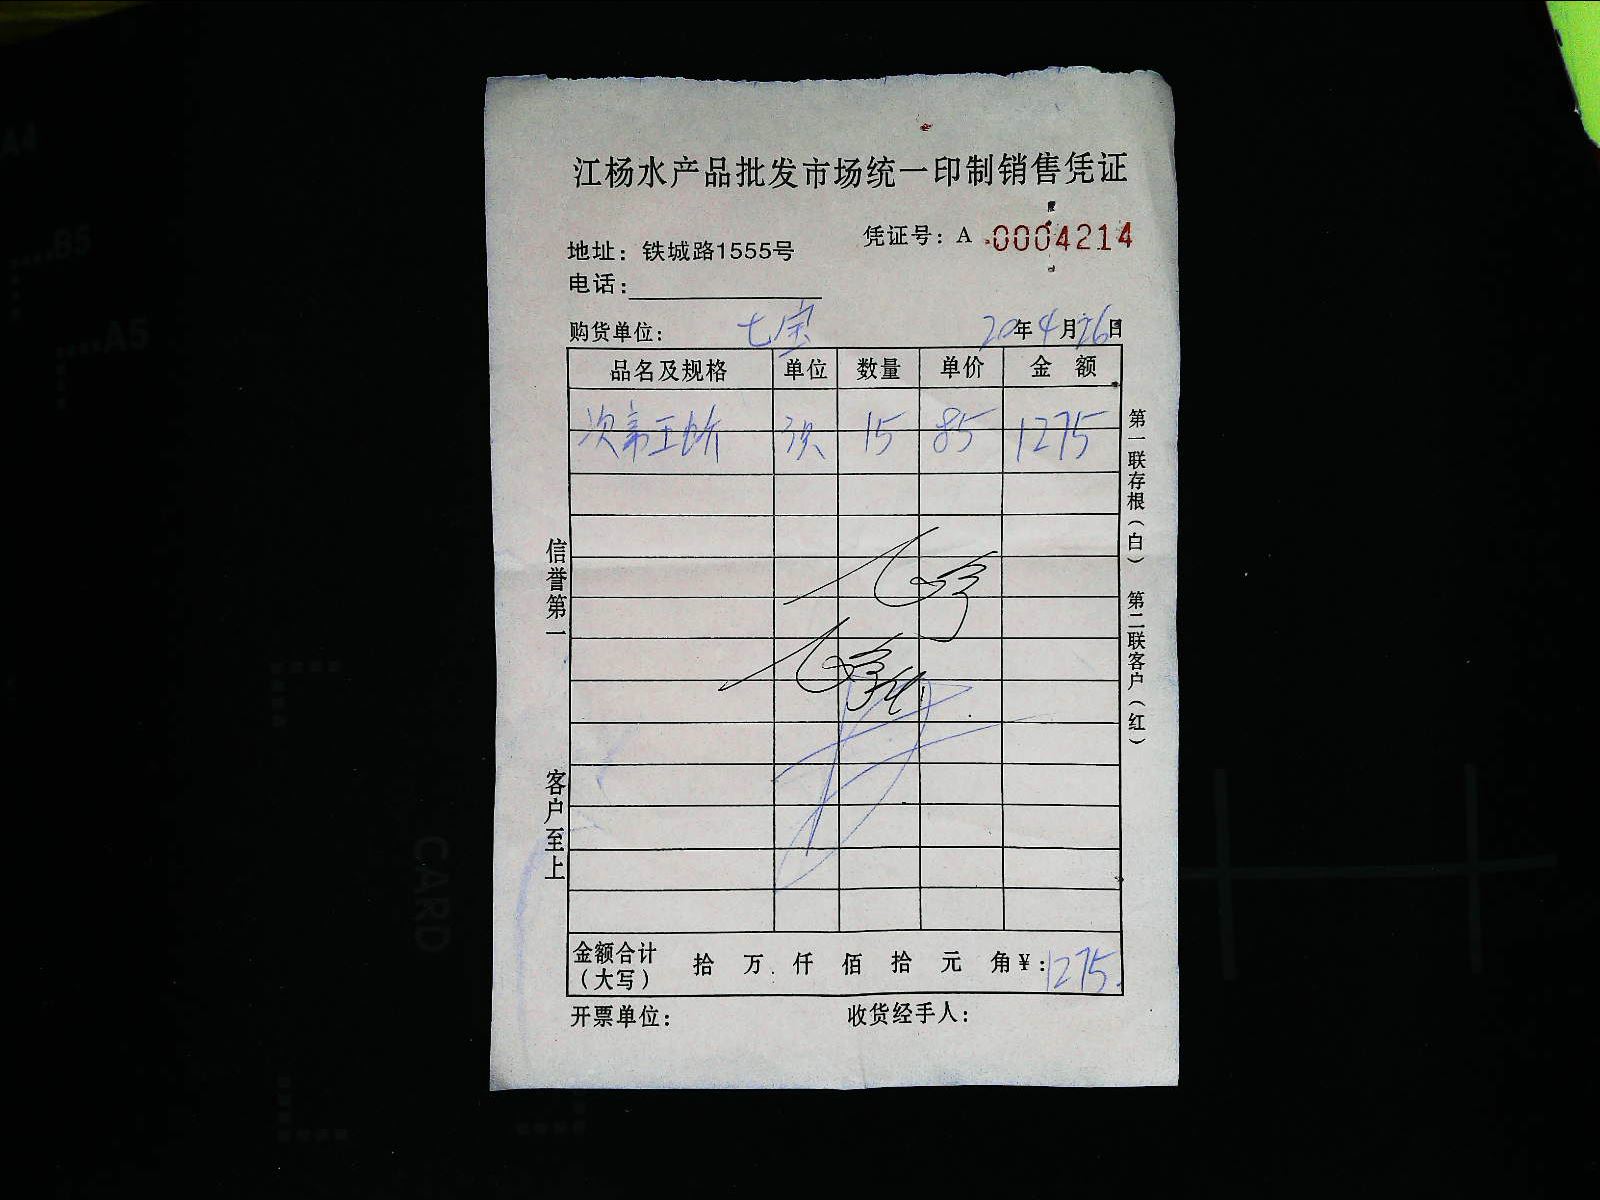 江杨水产品批发市场统一印制销售凭证
凭证号：A 0004214
地址：铁城路1555号
电话：
购货单位： 七宝 20年4月26日
品名及规格 单位 数量 单价 金 额
15 85 1275
信誉第一
客户至上
第一联存根（白） 第二联客户（红）
金额合计（大写） 拾 万 仟 佰 拾 元 角 ¥：1275
开票单位： 收货经手人：
A4
B5
A5
CARD